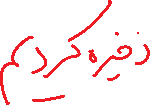 ذخیره کردیم